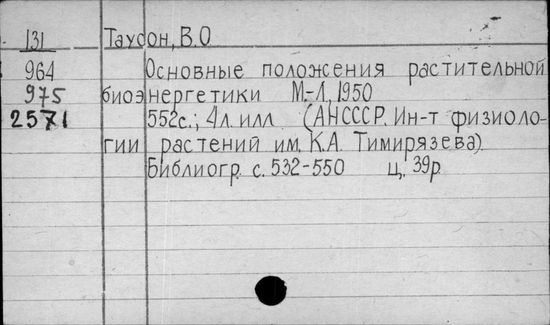 131 Таусон, В.О.
964 Основные положения растительной
975 биоэнергетики М.-Л., 1950
2571 552с.; 4л. илл (АНСССР. Ин-т физиоло-
гии растений им. К.А. Тимирязева).
Библиогр. с. 532-550 ц. 39р.